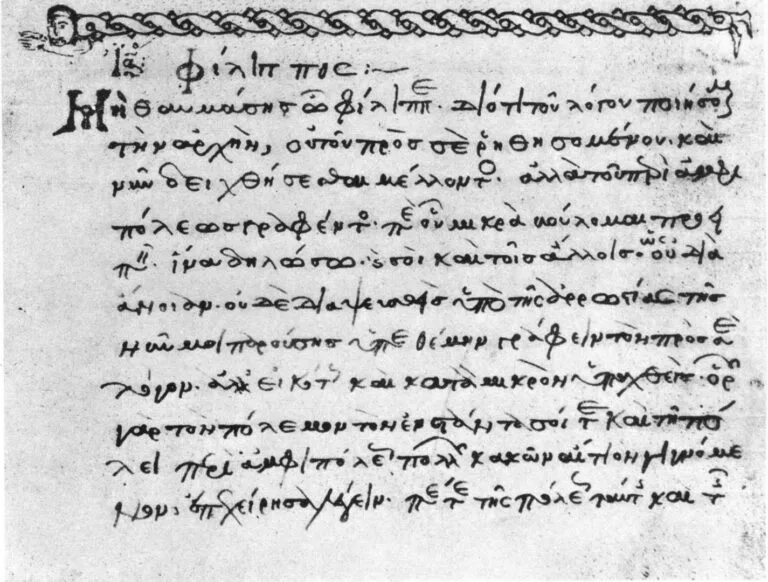 φίλιππος :~
Μὴ θαυμάσης ὦ φίλιππε· διότι τοῦ λόγου ποιήσομ
τὴν ἀρχὴν, οὐ τοῦ πρὸς σὲ ῥηθησομένου· καὶ
νῦν δειχθήσεσθαι μέλλοντ· ἀλλὰ τοῦ περὶ ἀμφι
πόλεως γραφέντ· πε οὗ μικρὰ βούλομαι προει
π· ἵνα δηλώσω σοὶ καὶ τοῖς ἄλλοισ· ὡς οὐ διὰ
ἄνοιαν· οὐδὲ διαψευσθεὶς ὑπὸ τῆς ἀρρωστίας τῆς
νῦν μοι παρούσης ἐπεθέμην γράφειν τὸν πρὸς σὲ
λόγον· ἀλλ εἰκότ καὶ κατὰ μικρὸν ὑπαχθείς· ὁρ
γὰρ τὸν πόλεμον τὸν ἐνστάντα σοί τε καὶ τῇ πό
λει περὶ ἀμφιπόλε πολλ κακῶν αἴτιον γιγνόμε
νον, ἐπεχείρησα λέγειν· πε τε τῆς πόλε ταύτ καὶ τ